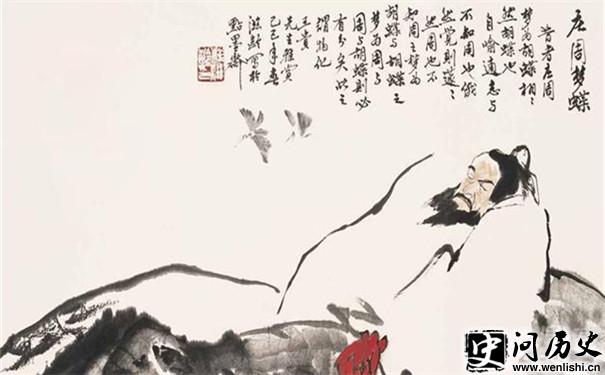 庄周梦蝶
昔者庄周
梦为胡蝶栩〻
然胡蝶也
自喻适志与
不知周也俄
然觉则蘧〻
然周也不
知周之梦为
胡蝶与胡蝶之
梦为周与
周与胡蝶则必
有分矣此之
谓物化
王贵
先生雅赏
己巳年春
写於
点墨斋
问历史
www.wenlishi.cn